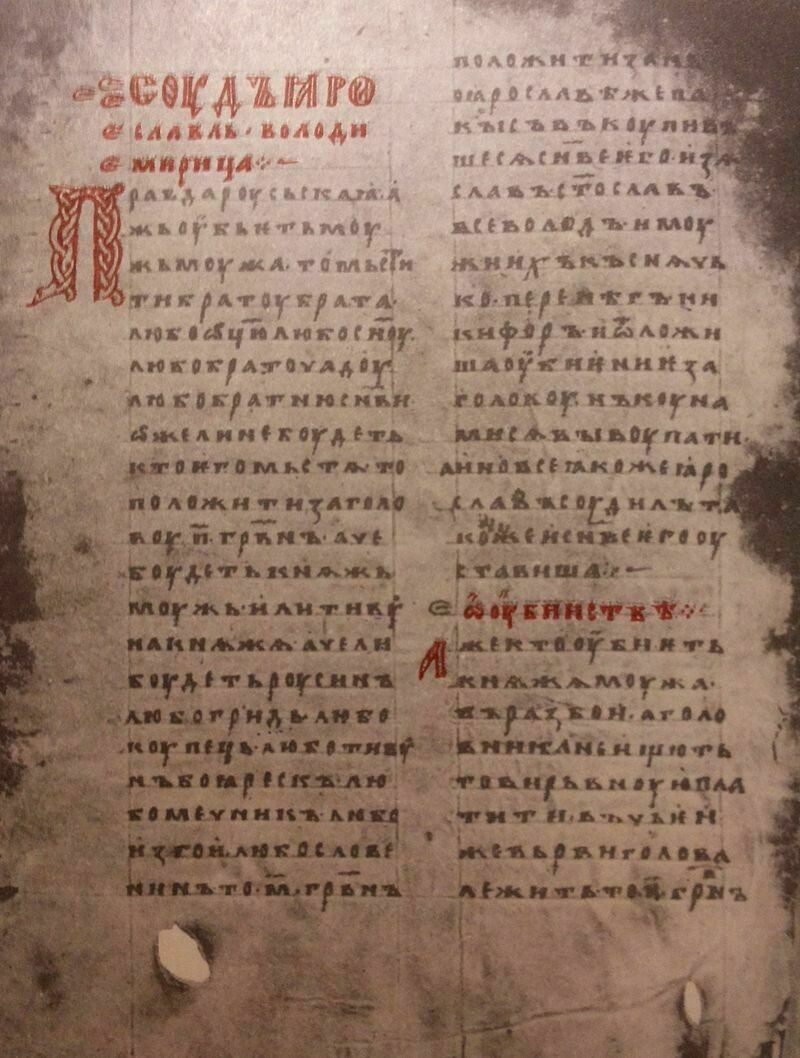 СОУДЪ ꙖРО
СЛАВЛЬ · ВОЛОДИ
МИРИЦА
Правда роусьскаꙗ · а
жь оубьить моу
жь моужа · то мьсти
ти братоу брата ·
любо ѡц҃ю любо сн҃оу ·
любо братоучадоу
любо братню сн҃ви
ѡже ли не боудеть
кто иго мьстѧ то
положити за голо
воу · п҃ · грв҃нъ · аче
боудеть кнѧжь
моужь · или тивоу
на кнѧжѧ · аче ли
боудеть роусинъ
любо гридь · любо
коупець · любо тивоу
нъ боꙗрескъ · лю
бо мечникъ · любо
изгои · любо слове
нинъ то · м҃ · грв҃нъ
положити за нь
по ꙗрославѣ же па
кы съвъкоупивъ
шесѧ сн҃ве иго · изѧ
славъ · ст҃ославъ ·
всеволодъ · и моу
жи ихъ къснѧчь
ко · перенѣгъ · ни
кифоръ · и ѿложи
ша оубиинии за
головоу · нъ коуна
ми сѧ выкоупати ·
а ино все ꙗкоже ꙗро
славъ соудилъ та
коже и сн҃ве иго оу
ставиша
Ѡ ОУБИИСТВѢ
Аже кто оубиить
кнѧжѧ моужа ·
въ разбои · а голо
вника не ищють
то вирьвноую пла
тити · въ чьии
же вьрви голова
лежить то · п҃ · грв҃нъ